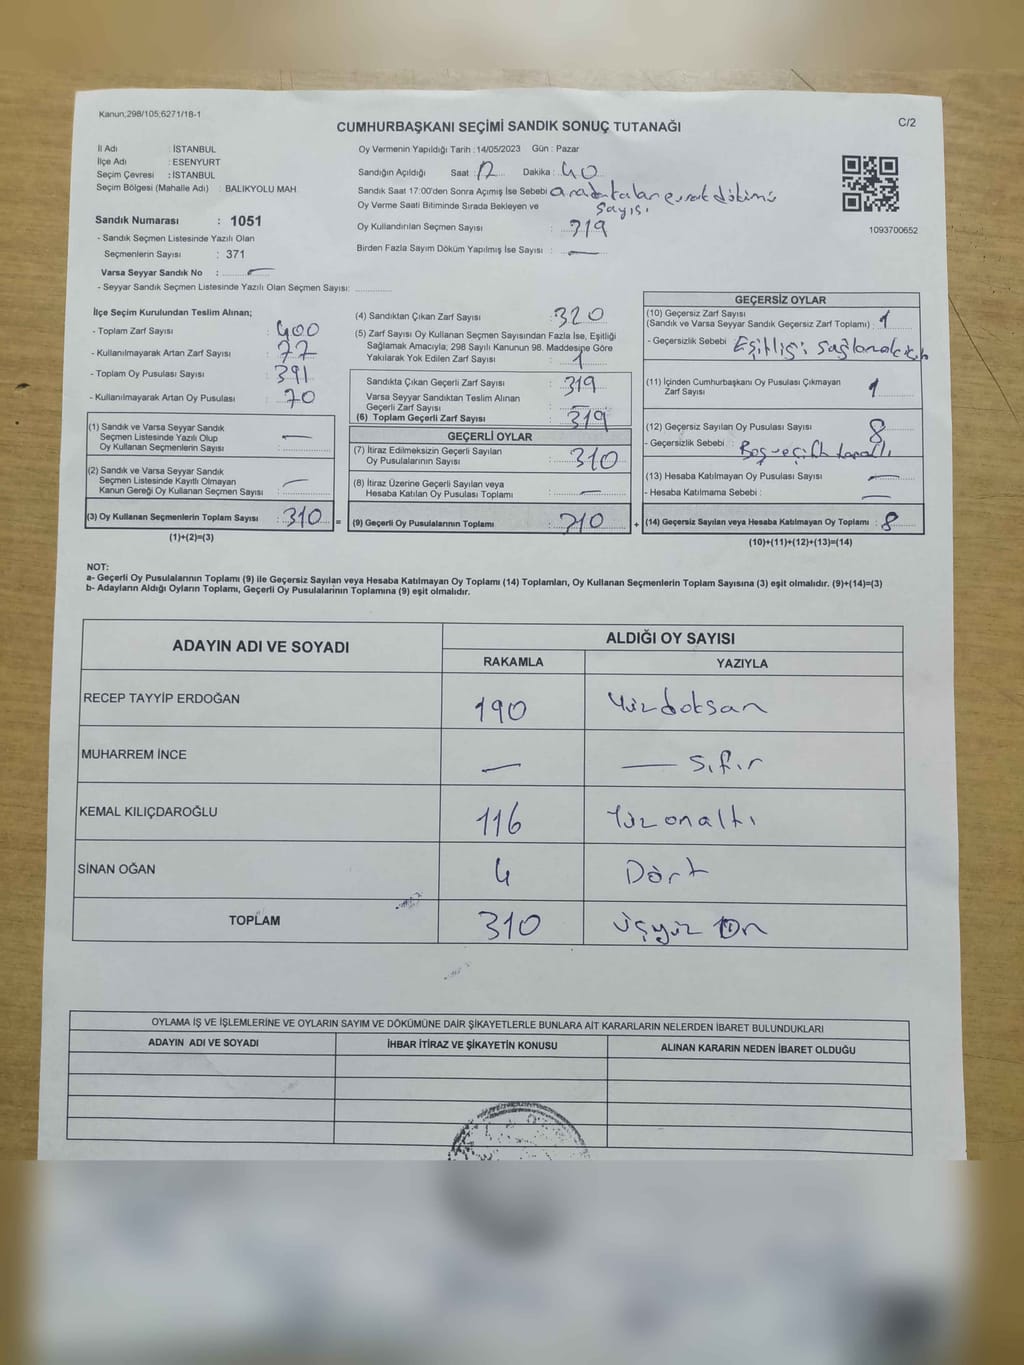 Kanun;298/105;6271/18-1
C/2
CUMHURBAŞKANI SEÇİMİ SANDIK SONUÇ TUTANAĞI
İl Adı : İSTANBUL
İlçe Adı : ESENYURT
Seçim Çevresi : İSTANBUL
Seçim Bölgesi (Mahalle Adı) : BALIKYOLU MAH.
Sandık Numarası : 1051
- Sandık Seçmen Listesinde Yazılı Olan
Seçmenlerin Sayısı : 371
Varsa Seyyar Sandık No : —
- Seyyar Sandık Seçmen Listesinde Yazılı Olan Seçmen Sayısı:
Oy Vermenin Yapıldığı Tarih : 14/05/2023 Gün : Pazar
Sandığın Açıldığı Saat : 17 Dakika : 40
Sandık Saat 17:00'den Sonra Açımış İse Sebebi
Oy Verme Saati Bitiminde Sırada Bekleyen ve sayısı
Oy Kullandırılan Seçmen Sayısı : 319
Birden Fazla Sayım Döküm Yapılmış İse Sayısı : —
1093700652
İlçe Seçim Kurulundan Teslim Alınan;
- Toplam Zarf Sayısı : 400
- Kullanılmayarak Artan Zarf Sayısı : 77
- Toplam Oy Pusulası Sayısı : 391
- Kullanılmayarak Artan Oy Pusulası : 70
(1) Sandık ve Varsa Seyyar Sandık
Seçmen Listesinde Yazılı Olup
Oy Kullanan Seçmenlerin Sayısı : —
(2) Sandık ve Varsa Seyyar Sandık
Seçmen Listesinde Kayıtlı Olmayan
Kanun Gereği Oy Kullanan Seçmen Sayısı : —
(3) Oy Kullanan Seçmenlerin Toplam Sayısı : 310 =
(1)+(2)=(3)
(4) Sandıktan Çıkan Zarf Sayısı : 320
(5) Zarf Sayısı Oy Kullanan Seçmen Sayısından Fazla İse, Eşitliği
Sağlamak Amacıyla; 298 Sayılı Kanunun 98. Maddesine Göre
Yakılarak Yok Edilen Zarf Sayısı : 1
Sandıkta Çıkan Geçerli Zarf Sayısı : 319
Varsa Seyyar Sandıktan Teslim Alınan
Geçerli Zarf Sayısı : —
(6) Toplam Geçerli Zarf Sayısı : 319
GEÇERLİ OYLAR
(7) İtiraz Edilmeksizin Geçerli Sayılan
Oy Pusulalarının Sayısı : 310
(8) İtiraz Üzerine Geçerli Sayılan veya
Hesaba Katılan Oy Pusulası Toplamı : —
(9) Geçerli Oy Pusulalarının Toplamı : 310 +
GEÇERSİZ OYLAR
(10) Geçersiz Zarf Sayısı
(Sandık ve Varsa Seyyar Sandık Geçersiz Zarf Toplamı) : 1
- Geçersizlik Sebebi : Eşitliği sağlamak için
(11) İçinden Cumhurbaşkanı Oy Pusulası Çıkmayan
Zarf Sayısı : 1
(12) Geçersiz Sayılan Oy Pusulası Sayısı : 8
- Geçersizlik Sebebi : Boş ve çift taraflı
(13) Hesaba Katılmayan Oy Pusulası Sayısı : —
- Hesaba Katılmama Sebebi : —
(14) Geçersiz Sayılan veya Hesaba Katılmayan Oy Toplamı : 8
(10)+(11)+(12)+(13)=(14)
NOT:
a- Geçerli Oy Pusulalarının Toplamı (9) ile Geçersiz Sayılan veya Hesaba Katılmayan Oy Toplamı (14) Toplamları, Oy Kullanan Seçmenlerin Toplam Sayısına (3) eşit olmalıdır. (9)+(14)=(3)
b- Adayların Aldığı Oyların Toplamı, Geçerli Oy Pusulalarının Toplamına (9) eşit olmalıdır.
ADAYIN ADI VE SOYADI
ALDIĞI OY SAYISI
RAKAMLA YAZIYLA
RECEP TAYYİP ERDOĞAN 190 Yüzdoksan
MUHARREM İNCE — — sıfır
KEMAL KILIÇDAROĞLU 116 Yüzonaltı
SİNAN OĞAN 4 Dört
TOPLAM 310 üçyüz On
OYLAMA İŞ VE İŞLEMLERİNE VE OYLARIN SAYIM VE DÖKÜMÜNE DAİR ŞİKAYETLERLE BUNLARA AİT KARARLARIN NELERDEN İBARET BULUNDUKLARI
ADAYIN ADI VE SOYADI İHBAR İTİRAZ VE ŞİKAYETİN KONUSU ALINAN KARARIN NEDEN İBARET OLDUĞU